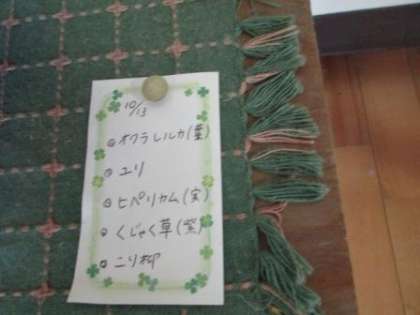 10/13
◎オクラレルカ(葉)
◎ユリ
◎ヒペリカム(実)
◎くじゃく草(紫)
◎こリ柳